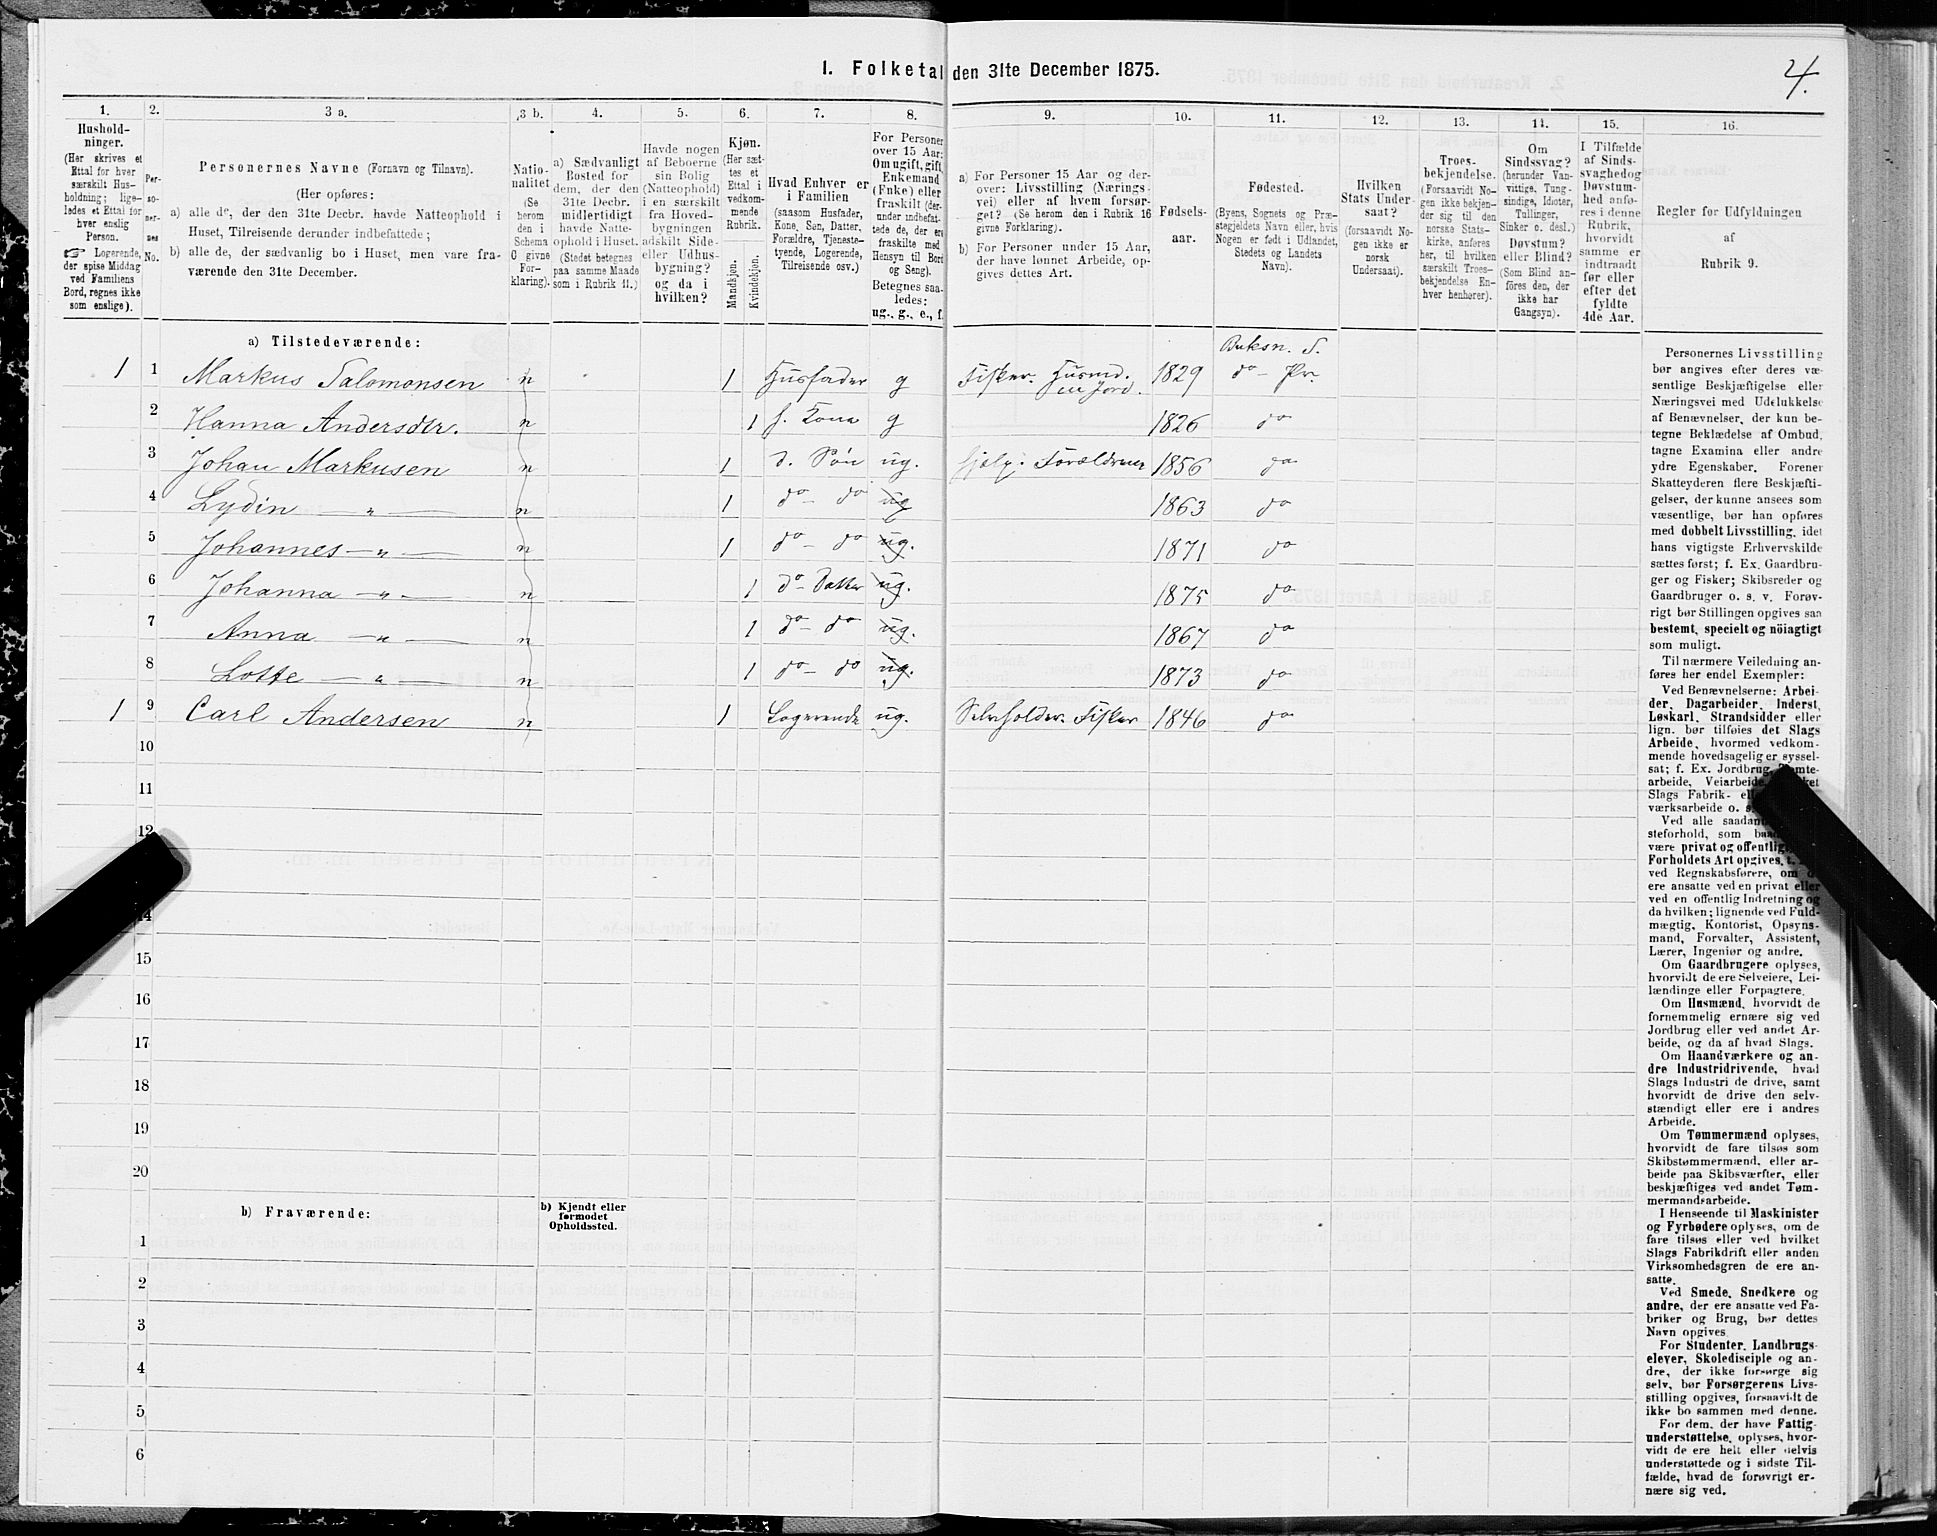 1. Folketal den 31te December 1875.
4.
1. 2. 3 a. 3 b. 4. 5. 6. 7. 8. 9. 10. 11. 12. 13. 14. 15. 16.
Hushold-
ninger.
(Her skrives et
Ettal for hver
særskilt Hus-
holdning; lige-
ledes et Ettal for
hver enslig
Person.
☞ Logerende,
der spise Middag
ved Familiens
Bord, regnes ikke
som enslige).
Per-
so-
ner-
nes
No.
Personernes Navne (Fornavn og Tilnavn).
(Her opføres:
a) alle de, der den 31te Decbr. havde Natteophold i
Huset, Tilreisende derunder indbefattede;
b) alle de, der sædvanlig bo i Huset, men vare fra-
værende den 31te December.
Natio-
nalitet
(Se
herom
den i
Schema
C givne
For-
klaring).
a) Sædvanligt
Bosted for
dem, der den
31te Decbr.
midlertidigt
havde Natte-
ophold i Huset.
(Stedet betegnes
paa samme Maade
som i Rubrik 11.)
Havde nogen
af Beboerne
sin Bolig
(Natteophold)
i en særskilt
fra Hoved-
bygningen
adskilt Side-
eller Udhus-
bygning?
og da i
hvilken?
Kjøn.
(Her sæt-
tes et
Ettal i
vedkom-
mende
Rubrik.
Mandkjøn.
Kvindekjøn.
Hvad Enhver er
i Familien
(saasom Husfader,
Kone, Søn, Datter,
Forældre, Tjeneste-
tyende, Logerende,
Tilreisende osv.)
For Personer
over 15 Aar:
Om ugift, gift,
Enkemand
(Enke) eller
fraskilt (der-
under indbefat-
tede de, der ere
fraskilte med
Hensyn til Bord
og Seng).
Betegnes saa-
ledes:
ug., g., e., f.
a) For Personer 15 Aar og der-
over: Livsstilling (Nærings-
vei) eller af hvem forsør-
get? (Se herom den i Rubrik 16
givne Forklaring).
b) For Personer under 15 Aar,
der have lønnet Arbeide, op-
gives dettes Art.
Fødsels-
aar.
Fødested.
(Byens, Sognets og Præ-
stegjeldets Navn eller, hvis
Nogen er født i Udlandet,
Stedets og Landets
Navn).
Hvilken
Stats Under-
saat?
(forsaavidt No-
gen ikke er
norsk
Undersaat).
Troes-
bekjendelse.
(Forsaavidt No-
gen ikke bekjen-
der sig til den
norske Stats-
kirke, anføres
her, til hvilken
særskilt Troes-
bekjendelse En-
hver henhører).
Om
Sindssvag?
(herunder Van-
vittige, Tung-
sindige, Idioter,
Tullinger,
Sinker o. desl.)
Døvstum?
eller Blind?
(Som Blind an-
føres den, der
ikke har
Gangsyn).
I Tilfælde
af Sinds-
svaghed og
Døvstum-
hed anfø-
res i denne
Rubrik,
hvorvidt
samme er
indtraadt
før eller
efter det
fyldte
4de Aar.
Regler for Udfyldningen
af
Rubrik 9.
a) Tilstedeværende:
Buksn. S.
1 1 Markus Salomonsen n 1 Husfader g Fisker. Husmd. m Jord. 1829 do Pr.
2 Hanna Andersdtr. n 1 h. Kone g 1826 do
3 Johan Markusen n 1 d. Søn ug. hjelp. Forældrene 1856 do
4 Lydin — „ — n 1 do do ug 1863 do
5 Johannes — „ — n 1 do do ug. 1871 do
6 Johanna — „ — n 1 do Datter ug. 1875 do
7 Anna — „ — n 1 do do ug. 1867 do
8 Lotte — „ — n 1 do do ug. 1873 do
1 9 Carl Andersen n 1 Logerende ug. Selvholden Fisker 1846 do
10
11
12
14
15
16
17
18
19
20
b) Fraværende:
b) Kjendt eller
formodet
Opholdssted.
1
2
3
4
5
6
Personernes Livsstilling
bør angives efter deres væ-
sentlige Beskjæftigelse eller
Næringsvei med Udelukkelse
af Benævnelser, der kun be-
tegne Beklædelse af Ombud,
tagne Examina eller andre
ydre Egenskaber. Forener
Skatteyderen flere Beskjæfti-
gelser, der kunne ansees som
væsentlige, bør han opføres
med dobbelt Livsstilling, idet
hans vigtigste Erhvervskilde
sættes først; f. Ex. Gaardbru-
ger og Fisker; Skibsreder og
Gaardbruger o. s. v. Forøv-
rigt bør Stillingen opgives saa
bestemt, specielt og nöiagtigt
som muligt.
Til nærmere Veiledning an-
føres her endel Exempler:
Ved Benævnelserne: Arbei-
der, Dagarbeider, Inderst,
Løskarl, Strandsidder eller
lign. bør tilføies det Slags
Arbeide, hvormed vedkom-
mende hovedsagelig er syssel-
sat; f. Ex. Jordbrug, Tomte-
arbeide, Veiarbeide,
Slags Fabrik-
værksarbeide o. s.
Ved alle
steforhold, som
være privat og offentligt,
Forholdets Art opgives,
ved Regnskabsførere, om
ere ansatte ved en privat eller
ved en offentlig Indretning og
da hvilken; lignende ved Fuld-
mægtig, Kontorist, Opsyns-
mand, Forvalter, Assistent,
Lærer, Ingeniør og andre.
Om Gaardbrugere oplyses,
hvorvidt de ere Selveiere, Lei-
lændinge eller Forpagtere.
Om Husmænd, hvorvidt de
fornemmelig ernære sig ved
Jordbrug eller ved andet Ar-
beide, og da af hvad Slags.
Om Haandværkere og an-
dre Industridrivende, hvad
Slags Industri de drive, samt
hvorvidt de drive den selv-
stændigt eller ere i andres
Arbeide.
Om Tømmermænd oplyses,
hvorvidt de fare tilsøs som
Skibstømmermænd, eller ar-
beide paa Skibsværfter, eller
beskjæftiges ved andet Tøm-
mermandsarbeide.
I Henseende til Maskinister
og Fyrbødere oplyses, om de
fare tilsøs eller ved hvilket
Slags Fabrikdrift eller anden
Virksomhedsgren de ere an-
satte.
Ved Smede, Snedkere og
andre, der ere ansatte ved Fa-
briker og Brug, bør dettes
Navn opgives.
For Studenter, Landbrugs-
elever, Skoledisciple og an-
dre, der ikke forsørge sig
selv, bør Forsørgerens Livs-
stilling opgives, forsaavidt de
ikke bo sammen med denne.
For dem, der have Fattig-
understøttelse, oplyses, hvor-
vidt de ere helt eller delvis
understøttede og i sidste Til-
fælde, hvad de forøvrigt er-
nære sig ved.